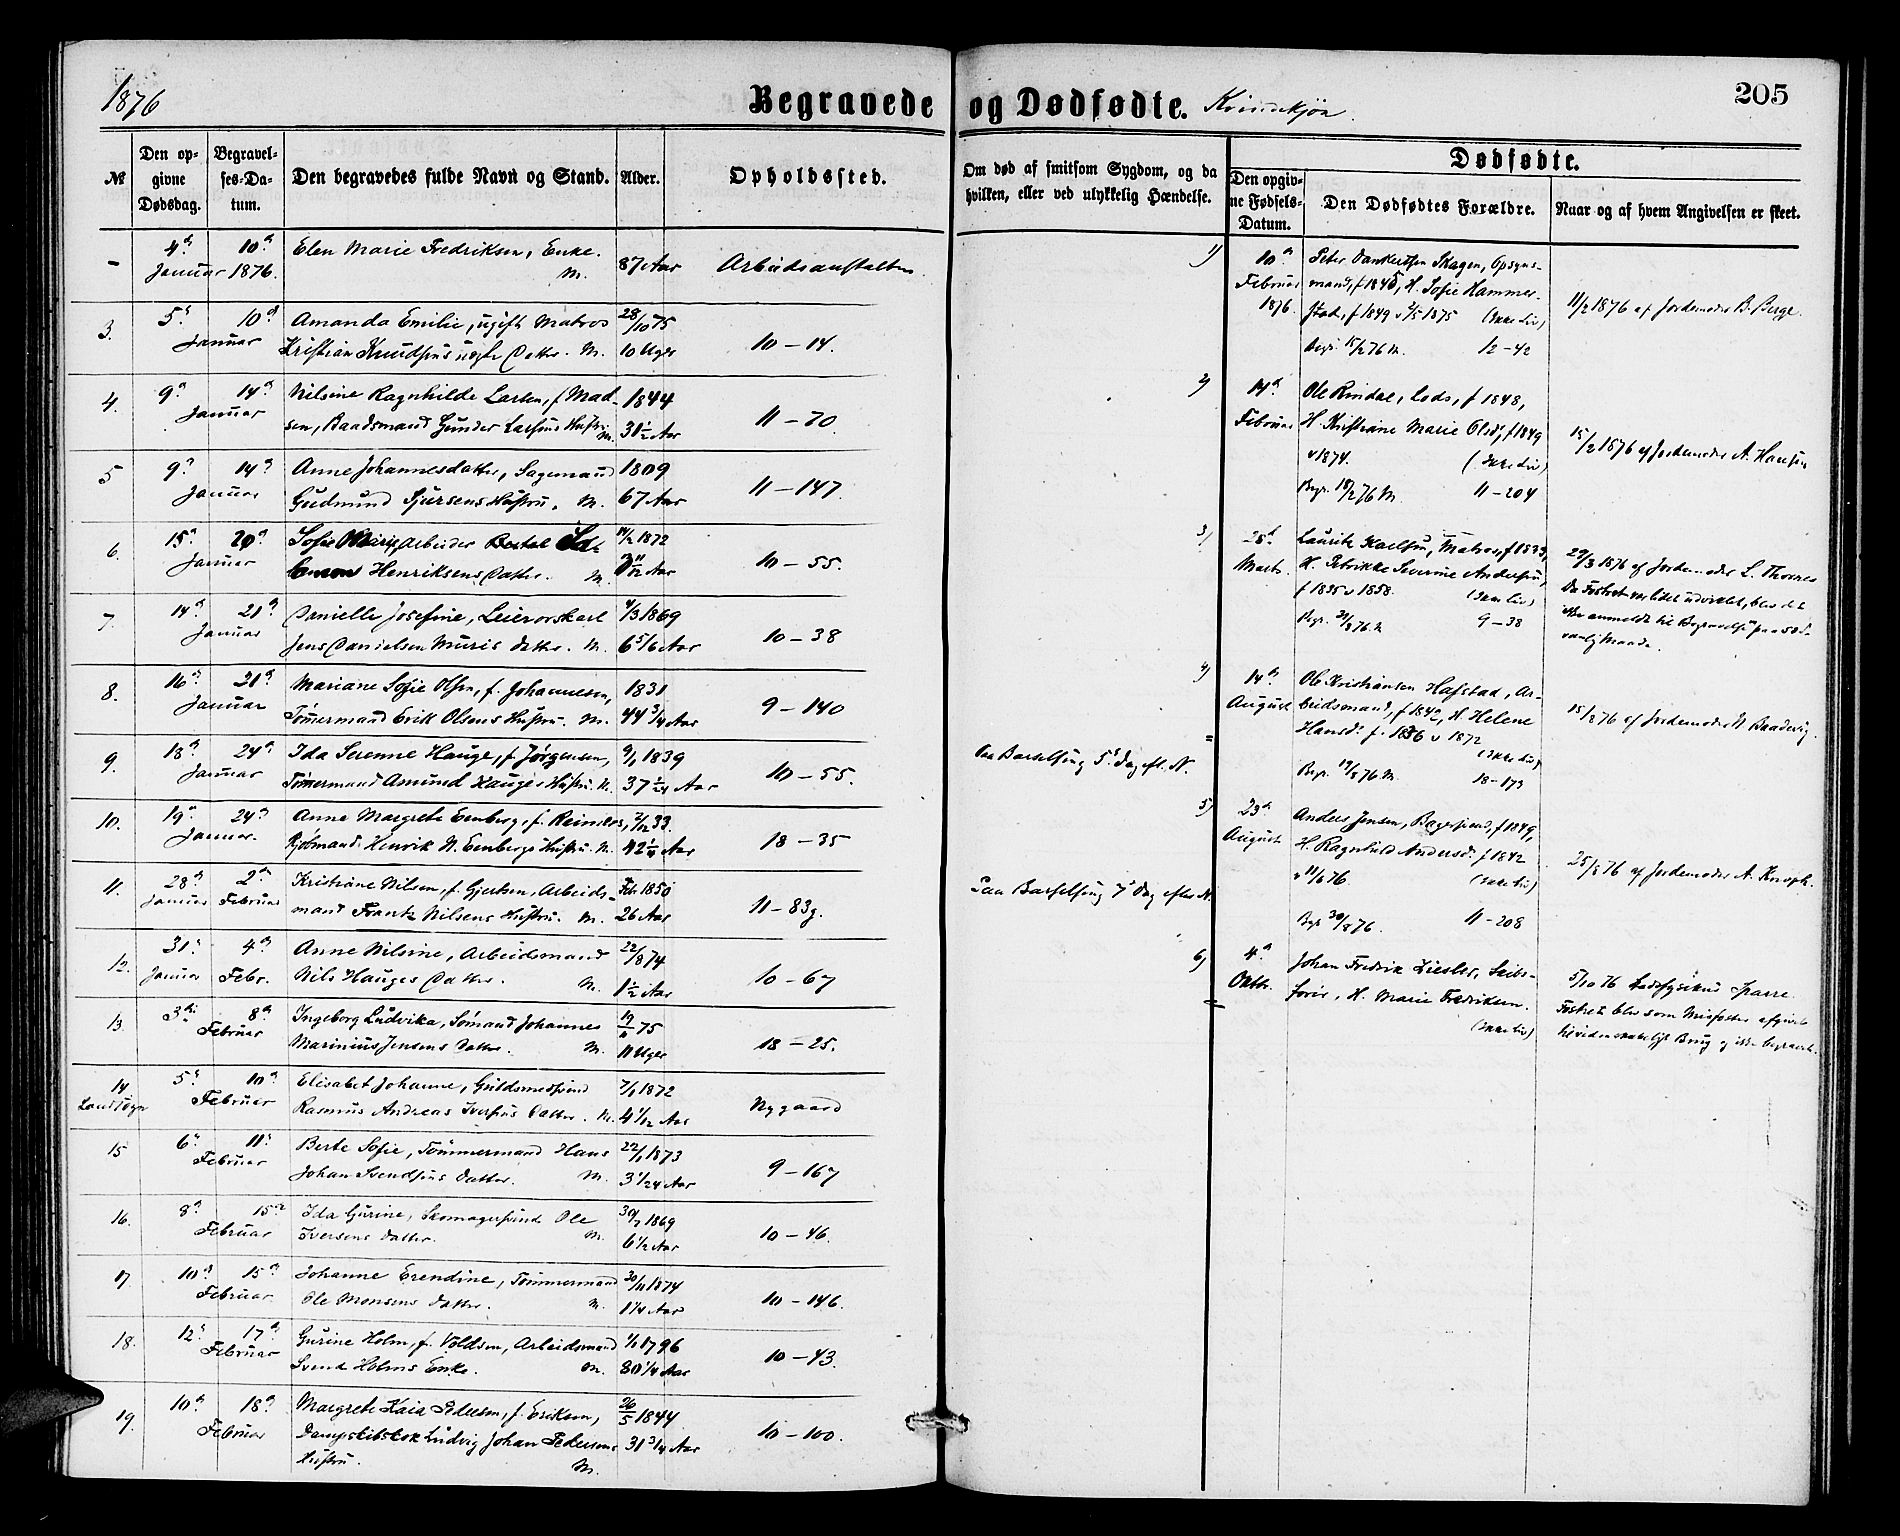 1876
Begravede og Dødfødte. Kvindekjøn.
205
No
Den opgivne Dødsdag.
Begravelses-Datum.
Den begravedes fulde Navn og Stand.
Alder.
Opholdssted.
Om død af smitsom Sygdom, og da hvilken, eller ved ulykkelig Hændelse.
Dødfødte.
Den opgivne Fødsels-Datum.
Den Dødfødtes Forældre.
Naar og af hvem Angivelsen er skeet.
- 4de 10de Elen Marie Fredriksen, Enke.
Januar 1876. M. 87 Aar Arbeidsanstalten
3. 5te 10de Amanda Emilie, ugift Matros 28/10 75
Januar Kristian Knudsens uægte Datter. M. 10 Uger 10 – 14.
4. 9de 14de Nilsine Ragnhilde Larsen, f. Mad- 1844
Januar sen, Baadsmand Gunder Larsens Hustru. M. 31½ Aar 11 – 70
5 9de 14de Anne Johannesdatter, Sagemand 1809
Januar Gudmund Sjursens Hustru. M. 67 Aar 11 – 147
6. 15de 20de Sofie Marie, Arbeider 1872
Januar Henriksens Datter. M. Aar 10 – 55.
7. 14de 21de Danielle Josefine, Leiervorskarl 4/3 1869
Januar Jens Danielsen Muris Datter. M. 6 5/6 Aar 10 – 38
8. 16de 21de Mariane Sofie Olsen, f. Johannesen, 1831
Januar Tømmermand Erik Olsens Hustru. M. 44 3/4 Aar 9 – 140
9. 18de 24de Ida Serenne Hauge, f. Jørgensen, 9/1 1839
Januar Tømmermand Amund Hauges Hustru. M. 37 1/24 Aar 10 – 55.
10. 19de 24de Anne Margrete Eenberg, f. Reimers, 7/12 33.
Januar. Kjøbmand Henrik N. Eenbergs Hustru. M. 42¼ Aar 18 – 35
11. 28de 2den Kristiane Nilsen, f. Gjertsen, Arbeids- Feb. 1850
Januar Februar mand Frantz Nilsens Hustru. M. 26 Aar 11 – 83g.
12. 31te 4de Anne Nilsine, Arbeidsmand 22/8 74
Januar Febr. Nils Hauges Datter. M. 1½ Aar 10 – 67
13. 3die 8de Ingeborg Ludvika, Sømand Johannes 75
Februar Marinius Jensens Datter. M. 11 Uger 18 – 25.
14 5te 10de Elisabet Johanne, Guldsmedsvend 7/1 1872
Landsogn Februar Rasmus Andreas Iversens Datter. M. 4 1/12 Aar Nygaard
15 6te 11te Berte Sofie, Tømmermand Hans 22/1 1873
Februar Johan Svendsens Datter. M. 3 1/24 Aar 9 – 167
16. 8de 15de Ida Gurine, Skomagersvend Ole 30/7 1869
Februar Iversens Datter. M. 6½ Aar 10 – 46.
17. 10de 15de Johanne Erendine, Tømmermand 30/11 1874
Februar. Ole Monsens Datter. M. 1¼ Aar 10 – 146.
18. 12te 17de Gurine Holm, f. Voldsen, Arbeidsmand 1/1 1796
Februar Svend Holms Enke. M. 80¼ Aar 10 – 43.
19. 10de 18de Margrete Kaia Pedersen, f. Eriksen, 26/5 1844
Februar Dampskibskok Ludvig Johan Pedersens 31 3/4 Aar 10 – 100.
Hustru. M.
Paa Barselseng 5te Dag eft. N.
Paa Barselseng 7de Dag efter N.
1) 10de Peter Dankertsen Skagen, Opsyns-
Februar mand, f 1845, H. Sofie Hammer-
1876. stad, f 1849 v 2/5 1875 (Ikke Liv) 11/2 1876 af Jordemoder B. Berge.
Begr. 15/2 76 M. 12 – 42
2) 14de Ole Rindal, Lods, f 1848,
Februar H. Kristiane Marie Olsdr., f 1849 15/2 1876 af Jordemoder A. Hansen
v 1874. (Ikke Liv)
Begr. 18/2 76 M. 11 – 204
3) 28de Lauritz Karlsen, Matros, f 1833,
Marts. H. Petrikke Severine Andersen, 29/3 1876 af Jordemoder L. Thornes
f 1835 v 1858. (Ikke Liv) Da Fostret var lidet udviklet, blev det
Begr. 31/3 76 M 9 – 38 ikke anmeldt til Begravelse paa sæd-
vanlig Maade.
4) 14de Ole Kristiansen Hafstad, Ar-
August beidsmand, f 1842, H. Helene 15/8 76 af Jordemoder N. Baadsvig.
Hansdr. f. 1836 v 1872 (Ikke Liv)
Begr. 19/8 76 M. 18 – 173
5) 23de Anders Jensen, Bagersvend, f 1849,
August H. Ragnhild Andersdr. f 1842 25/8 76 af Jordemoder A. Knoph.
76. (Ikke Liv)
Begr 30/8 76. 11 – 208
6) 4de Johan Fredrik Ziesler, Skibs-
Oktbr. fører, H. Marie Fredriksen. 5/10 76 Stadsfysikus Sparre.
(Ikke Liv) Fostret blev som Misfoster afgivet
til videnskabeligt Brug og ikke begravet.